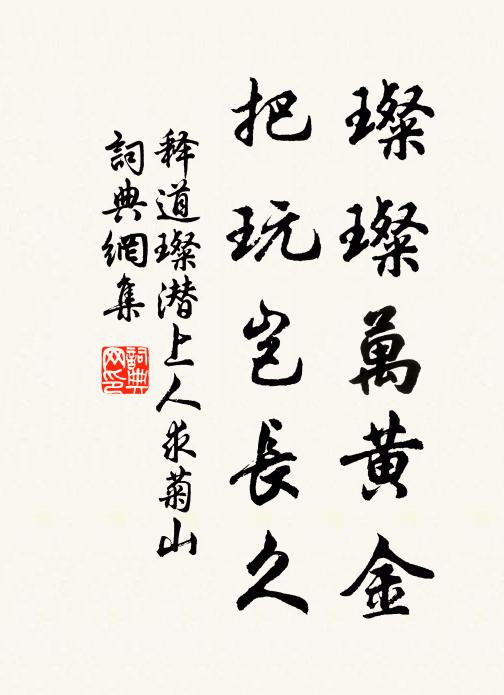 璨璨萬黄金
把玩豈長久
释道璨潜上人求菊山
詞典網集
詞典网印